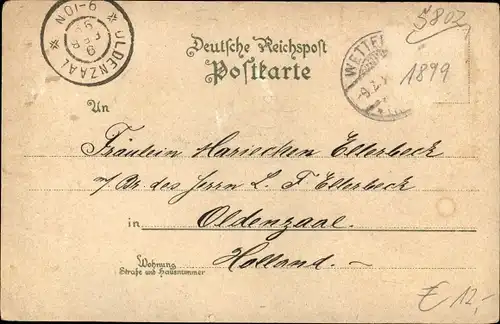 OLDENZAAL
9
FEB
9-10N
5802
Deutsche Reichspost
Postkarte
WETTE
9.2.
1899
An
Fräulein Mariechen Ellerbeck
p/Br. des Herrn L. F Ellerbeck
in Oldenzaal.
Holland. –
Wohnung
Straße und Hausnummer
€12,-